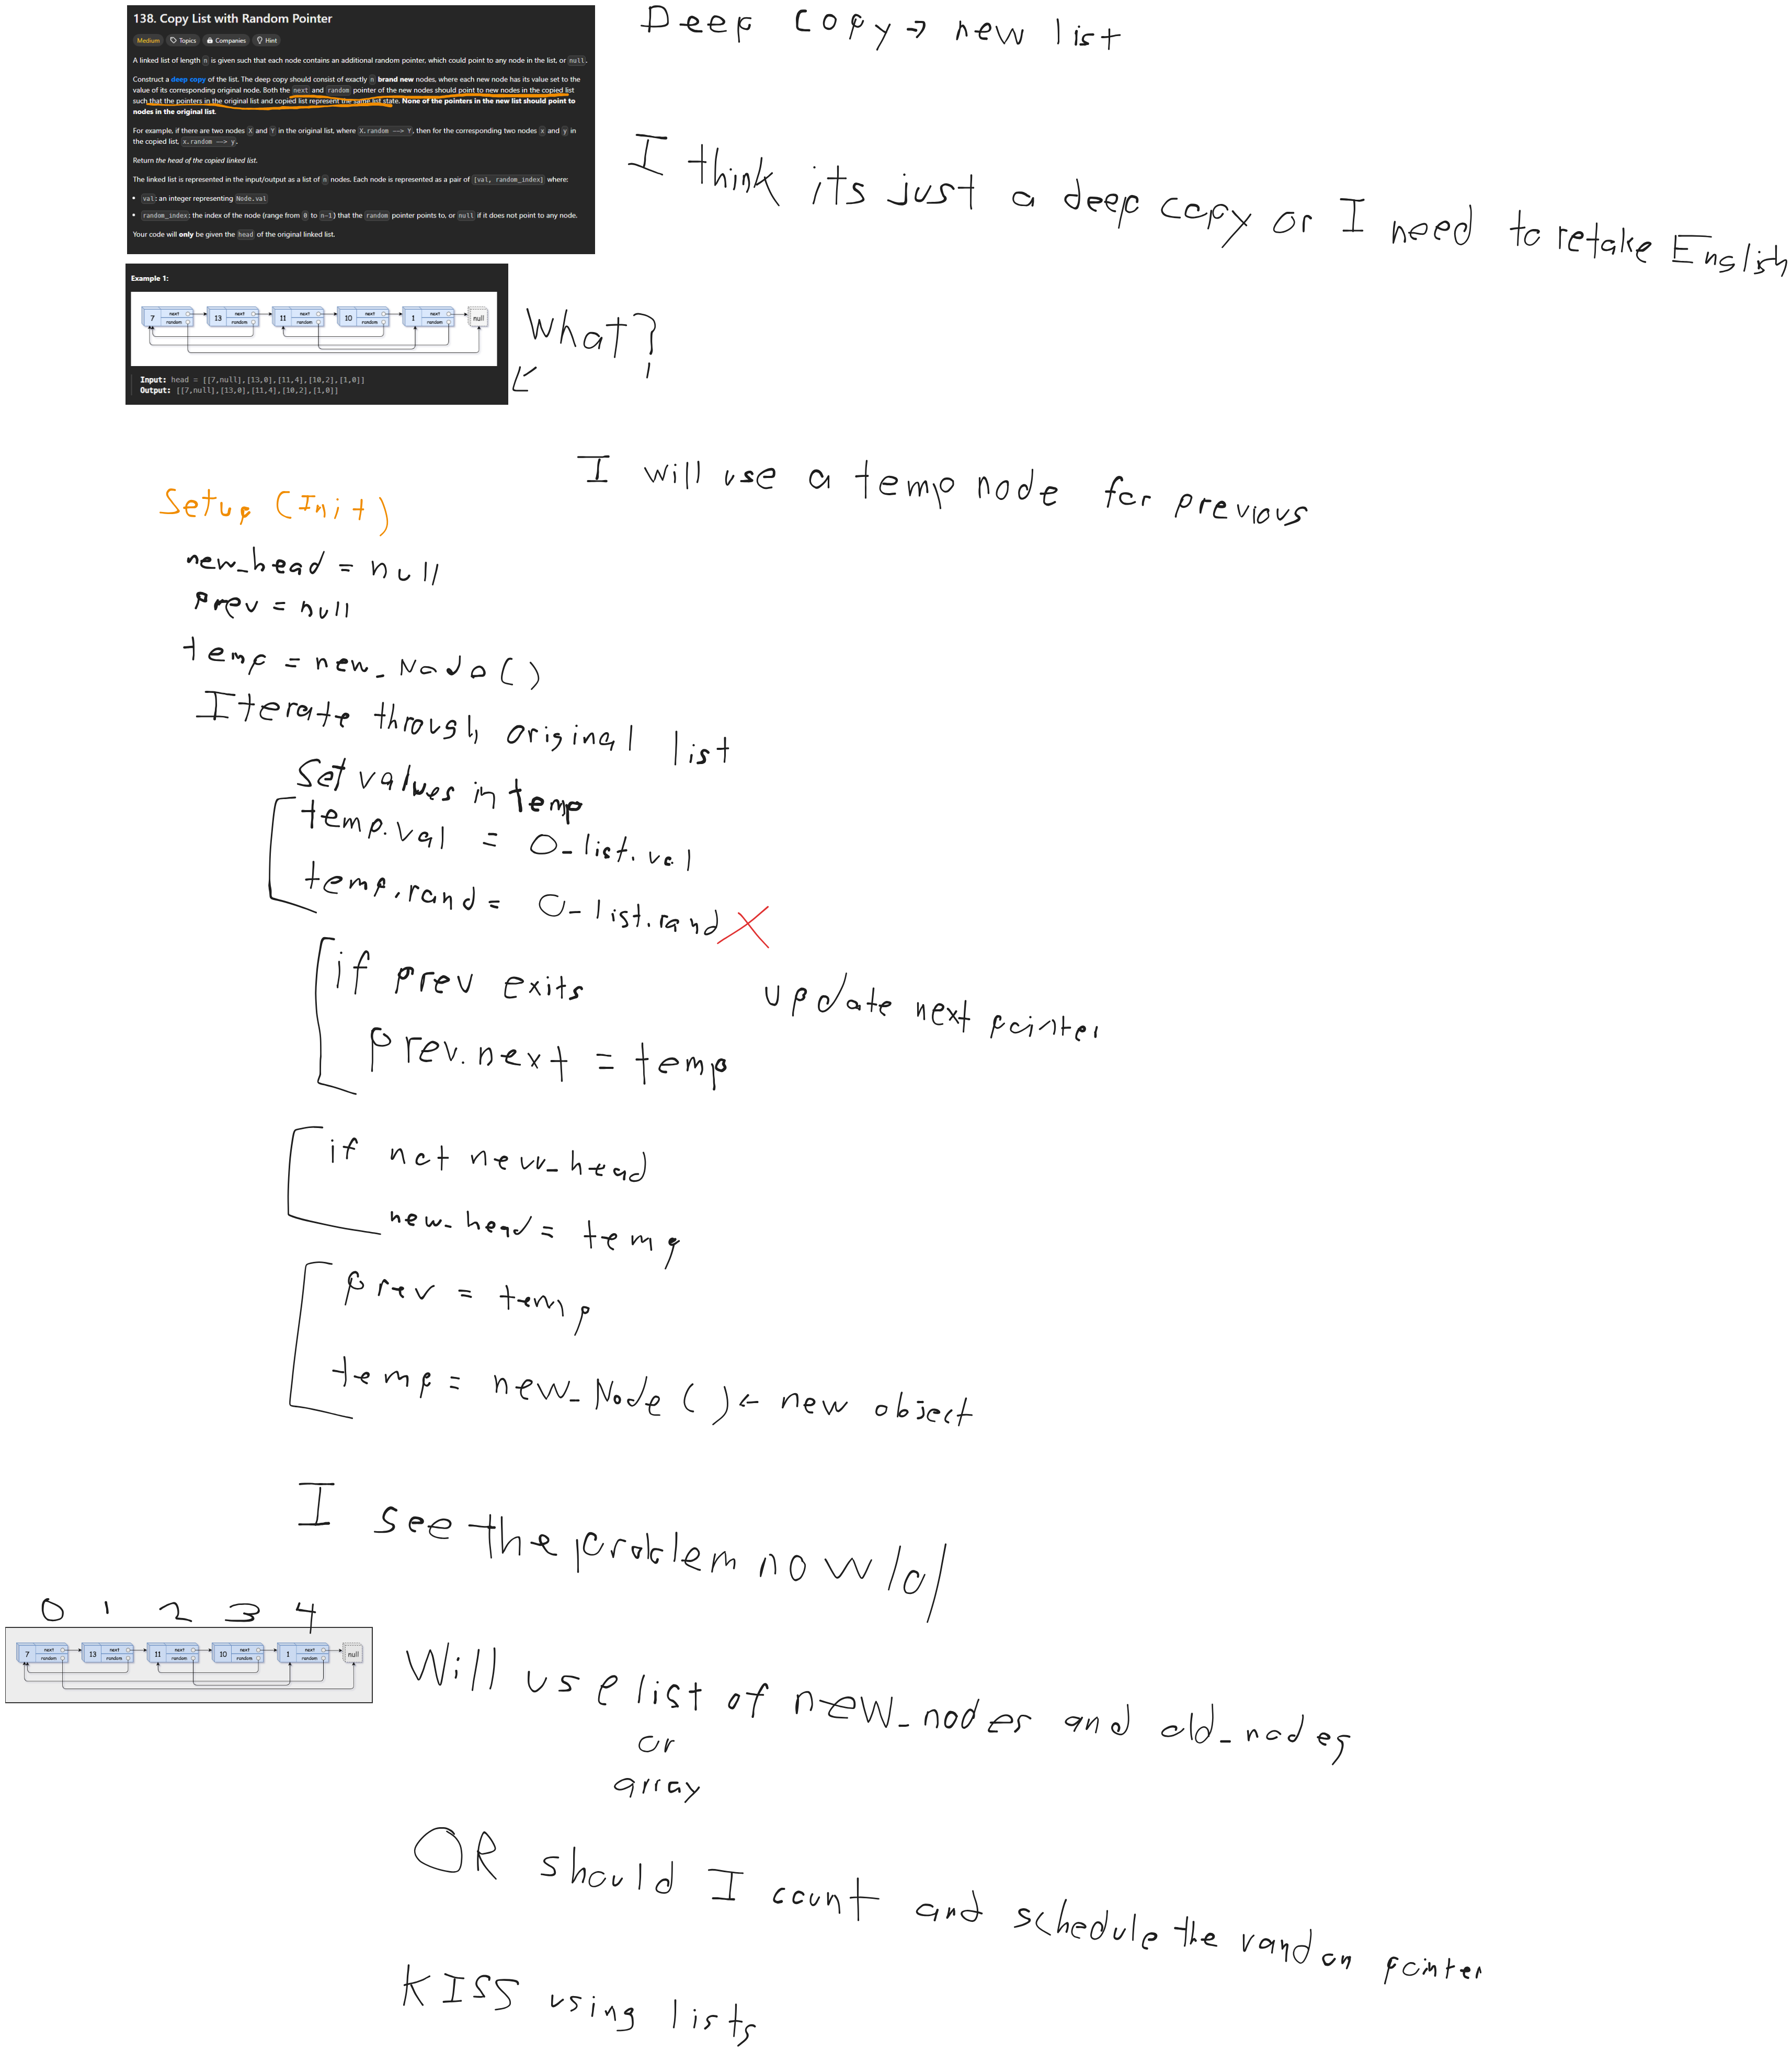 138. Copy List with Random Pointer
Medium Topics Companies Hint
A linked list of length n is given such that each node contains an additional random pointer, which could point to any node in the list, or null.
Construct a deep copy of the list. The deep copy should consist of exactly n brand new nodes, where each new node has its value set to the
value of its corresponding original node. Both the next and random pointer of the new nodes should point to new nodes in the copied list
such that the pointers in the original list and copied list represent the same list state. None of the pointers in the new list should point to
nodes in the original list.
For example, if there are two nodes X and Y in the original list, where X.random --> Y, then for the corresponding two nodes x and y in
the copied list, x.random --> y.
Return the head of the copied linked list.
The linked list is represented in the input/output as a list of n nodes. Each node is represented as a pair of [val, random_index] where:
• val: an integer representing Node.val
• random_index: the index of the node (range from 0 to n-1) that the random pointer points to, or null if it does not point to any node.
Your code will only be given the head of the original linked list.
Deep copy → new list
I think its just a deep copy or I need to retake English
Example 1:
7 next random 13 next random 11 next random 10 next random 1 next random null
Input: head = [[7,null],[13,0],[11,4],[10,2],[1,0]]
Output: [[7,null],[13,0],[11,4],[10,2],[1,0]]
What?
I will use a temp node for previous
Setup (Init)
new_head = null
prev = null
temp = new_Node()
Iterate through original list
Set values in temp
temp.val = O_list.val
temp.rand = O_list.rand X
if prev exits
update next pointer
prev.next = temp
if not new_head
new_head = temp
prev = temp
temp = new_Node() ← new object
I see the problem now lol
0 1 2 3 4
7 next random 13 next random 11 next random 10 next random 1 next random null
Will use list of new_nodes and old_nodes
or
array
OR should I count and schedule the randon pointer
KISS using lists